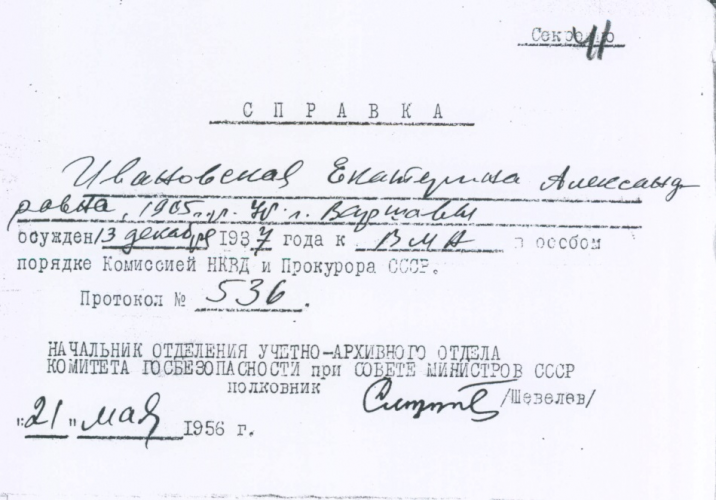 Секретно
11
СПРАВКА
Ивановская Екатерина Александ-
ровна, 1905 г. Варшавы
осужден 13 декабря 1937 года к ВМН в особом
порядке Комиссией НКВД и Прокурора СССР.
Протокол № 536.
НАЧАЛЬНИК ОТДЕЛЕНИЯ УЧЕТНО-АРХИВНОГО ОТДЕЛА
КОМИТЕТА ГОСБЕЗОПАСНОСТИ при СОВЕТЕ МИНИСТРОВ СССР
полковник /Шевелев/
"21" мая 1956 г.